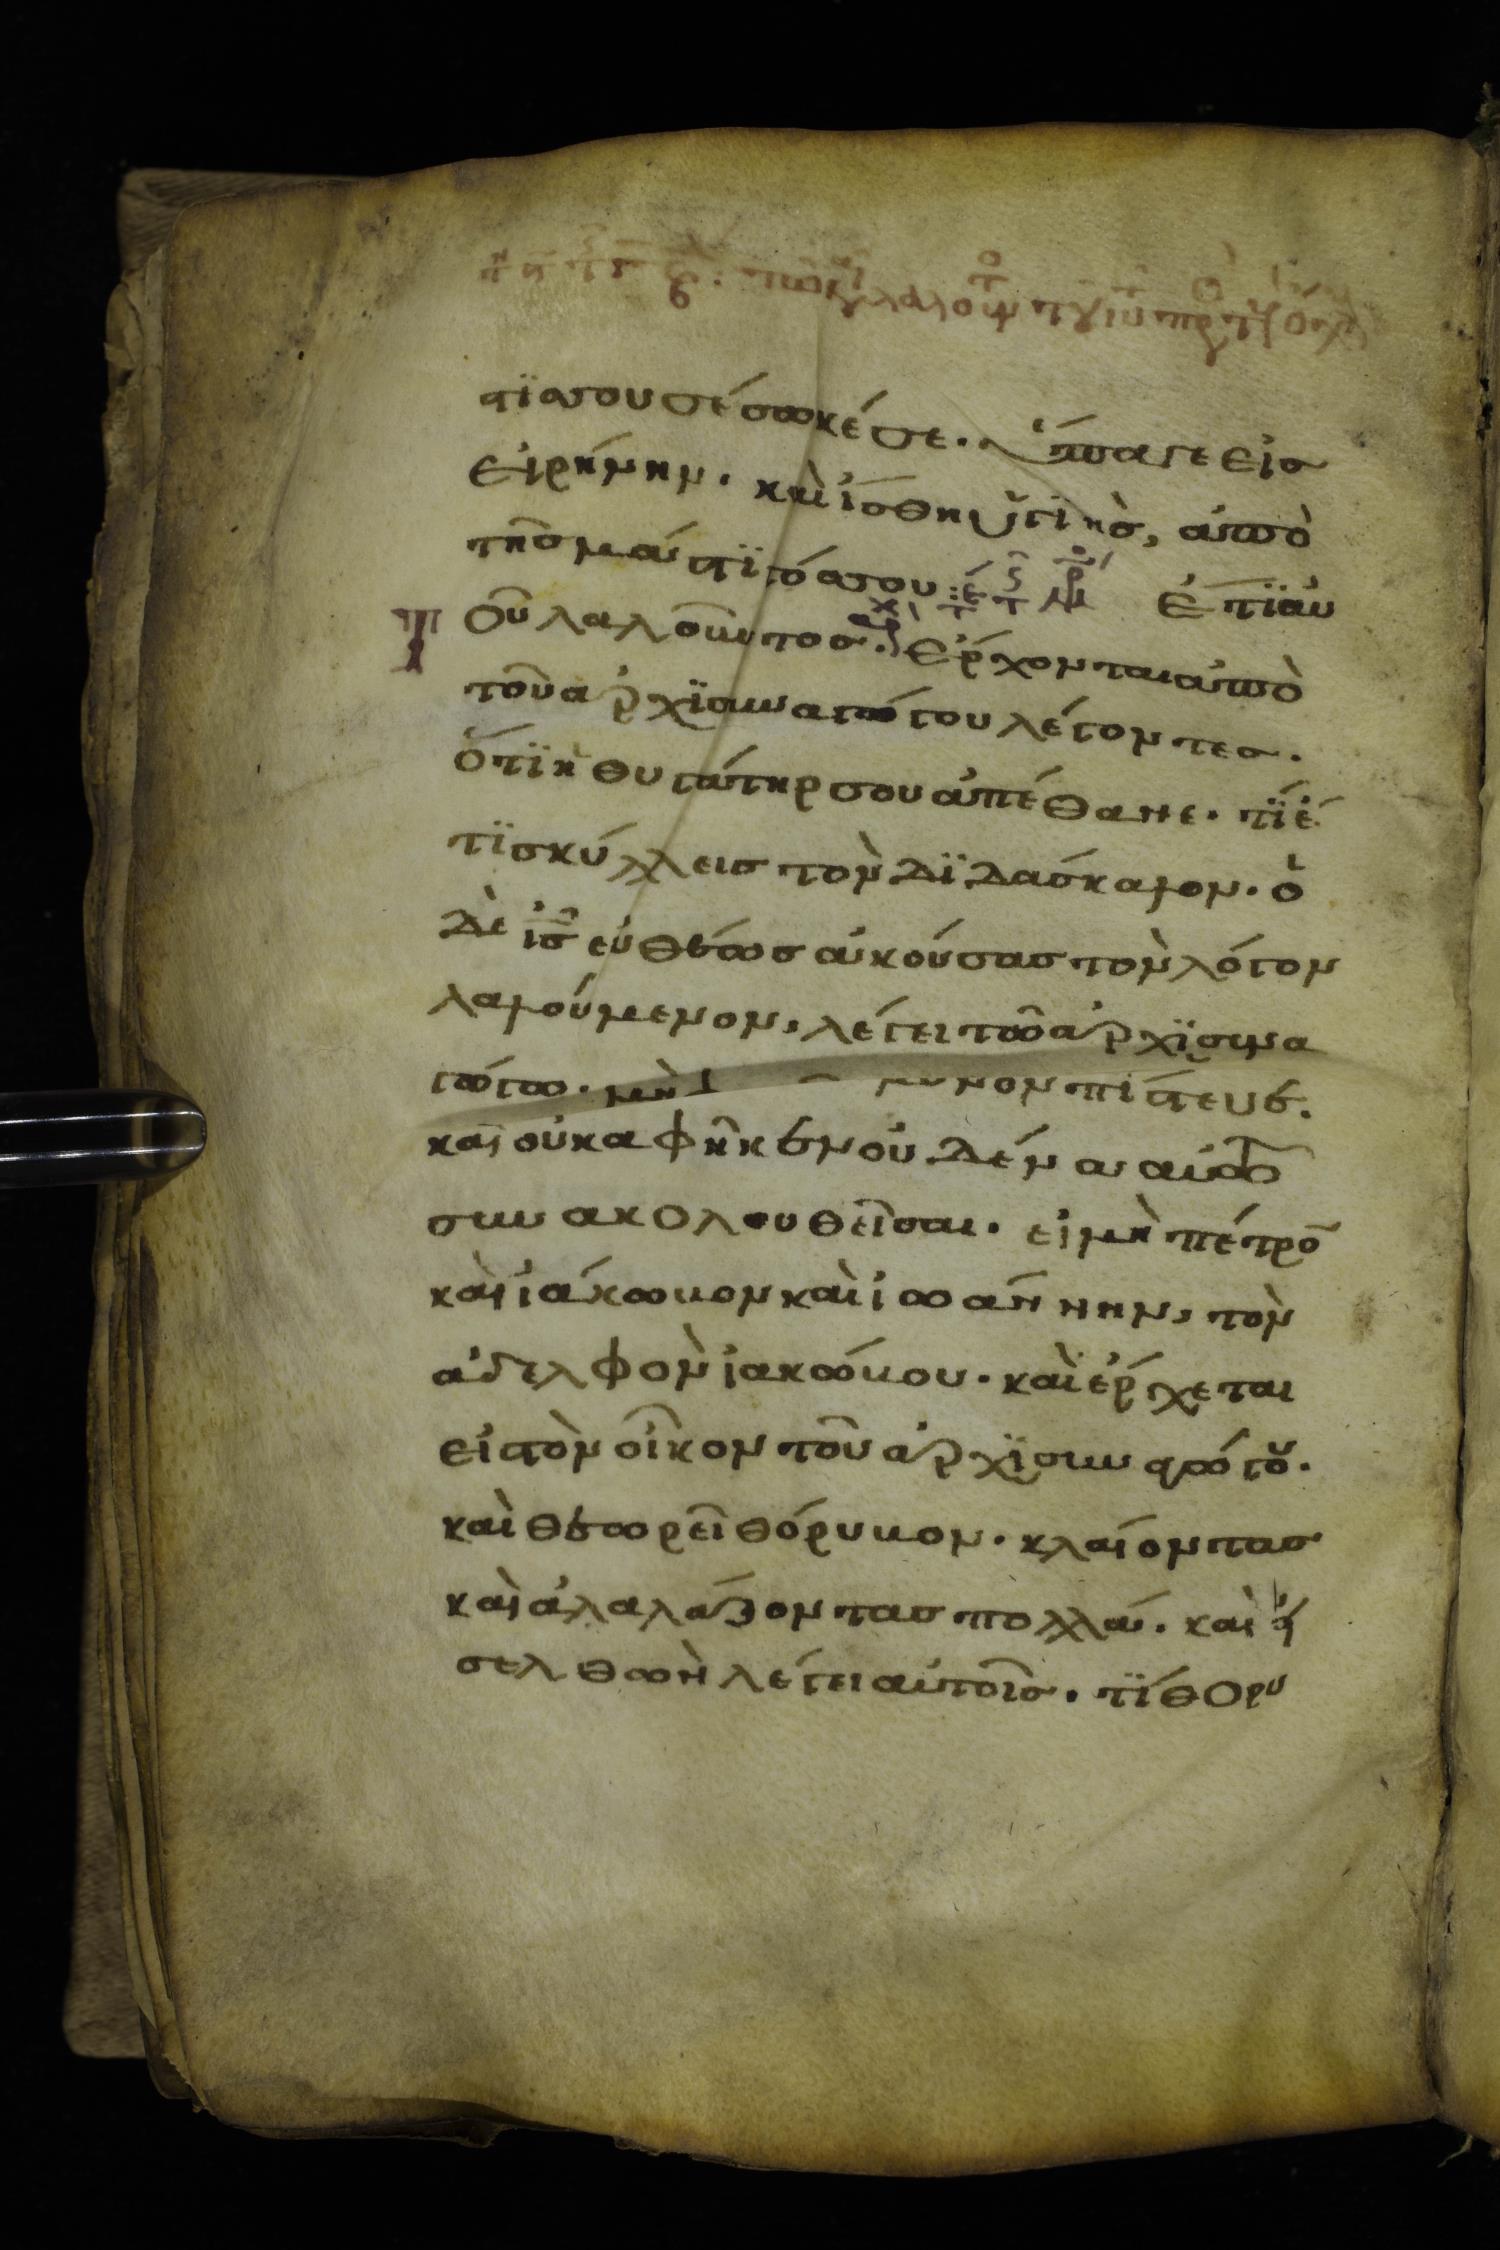 στϊσ σου σέσωκέ σε. ὕπαγε εἰσ
εἰρήνην. καὶ ἴσθη ὑγιὴσ, ἀπὸ
τῆσ μάστϊγόσ σου: Ἔτϊ αὐ
τοῦ λαλοῦντοσ. ἔρχονται ἀπὸ
τοῦ ἀρχϊσυναγώγου λέγοντεσ.
ὅτϊ ἡ θυγάτηρ σου ἀπέθανε. τϊ ἔ
τϊ σκύλλεισ τὸν δϊδάσκαλον. ὁ
δὲ ις εὐθέωσ ἀκούσασ τὸν λόγον
λαλούμενον, λέγει τῶ ἀρχϊσυνα
γώγω. μὴ μόνον πίστευε.
καὶ οὐκ αφῆκεν οὐδένα αὐτῶ
συνακολουθεῖσαι. εἰ μὴ πέτρο̅
καὶ ἰάκωβον καὶ ἰωάννην, τὸν
ἀδελφὸν ἰακώβου. καὶ ἔρχεται
εἰσ τὸν οἶκον τοῦ ἀρχϊσυναγώγου.
καὶ θεωρεῖ θόρυβον. κλαίοντασ
καὶ ἀλαλάζοντασ πολλά. καὶ εἰ
σελθὼν λέγει αὐτοῖσ. τϊ θορυ